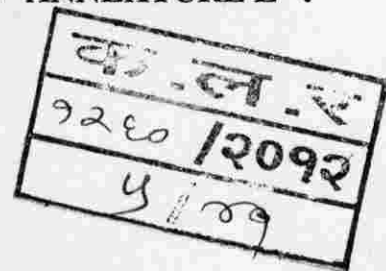 क.ल.र
१२६० /२०१२
५/४१